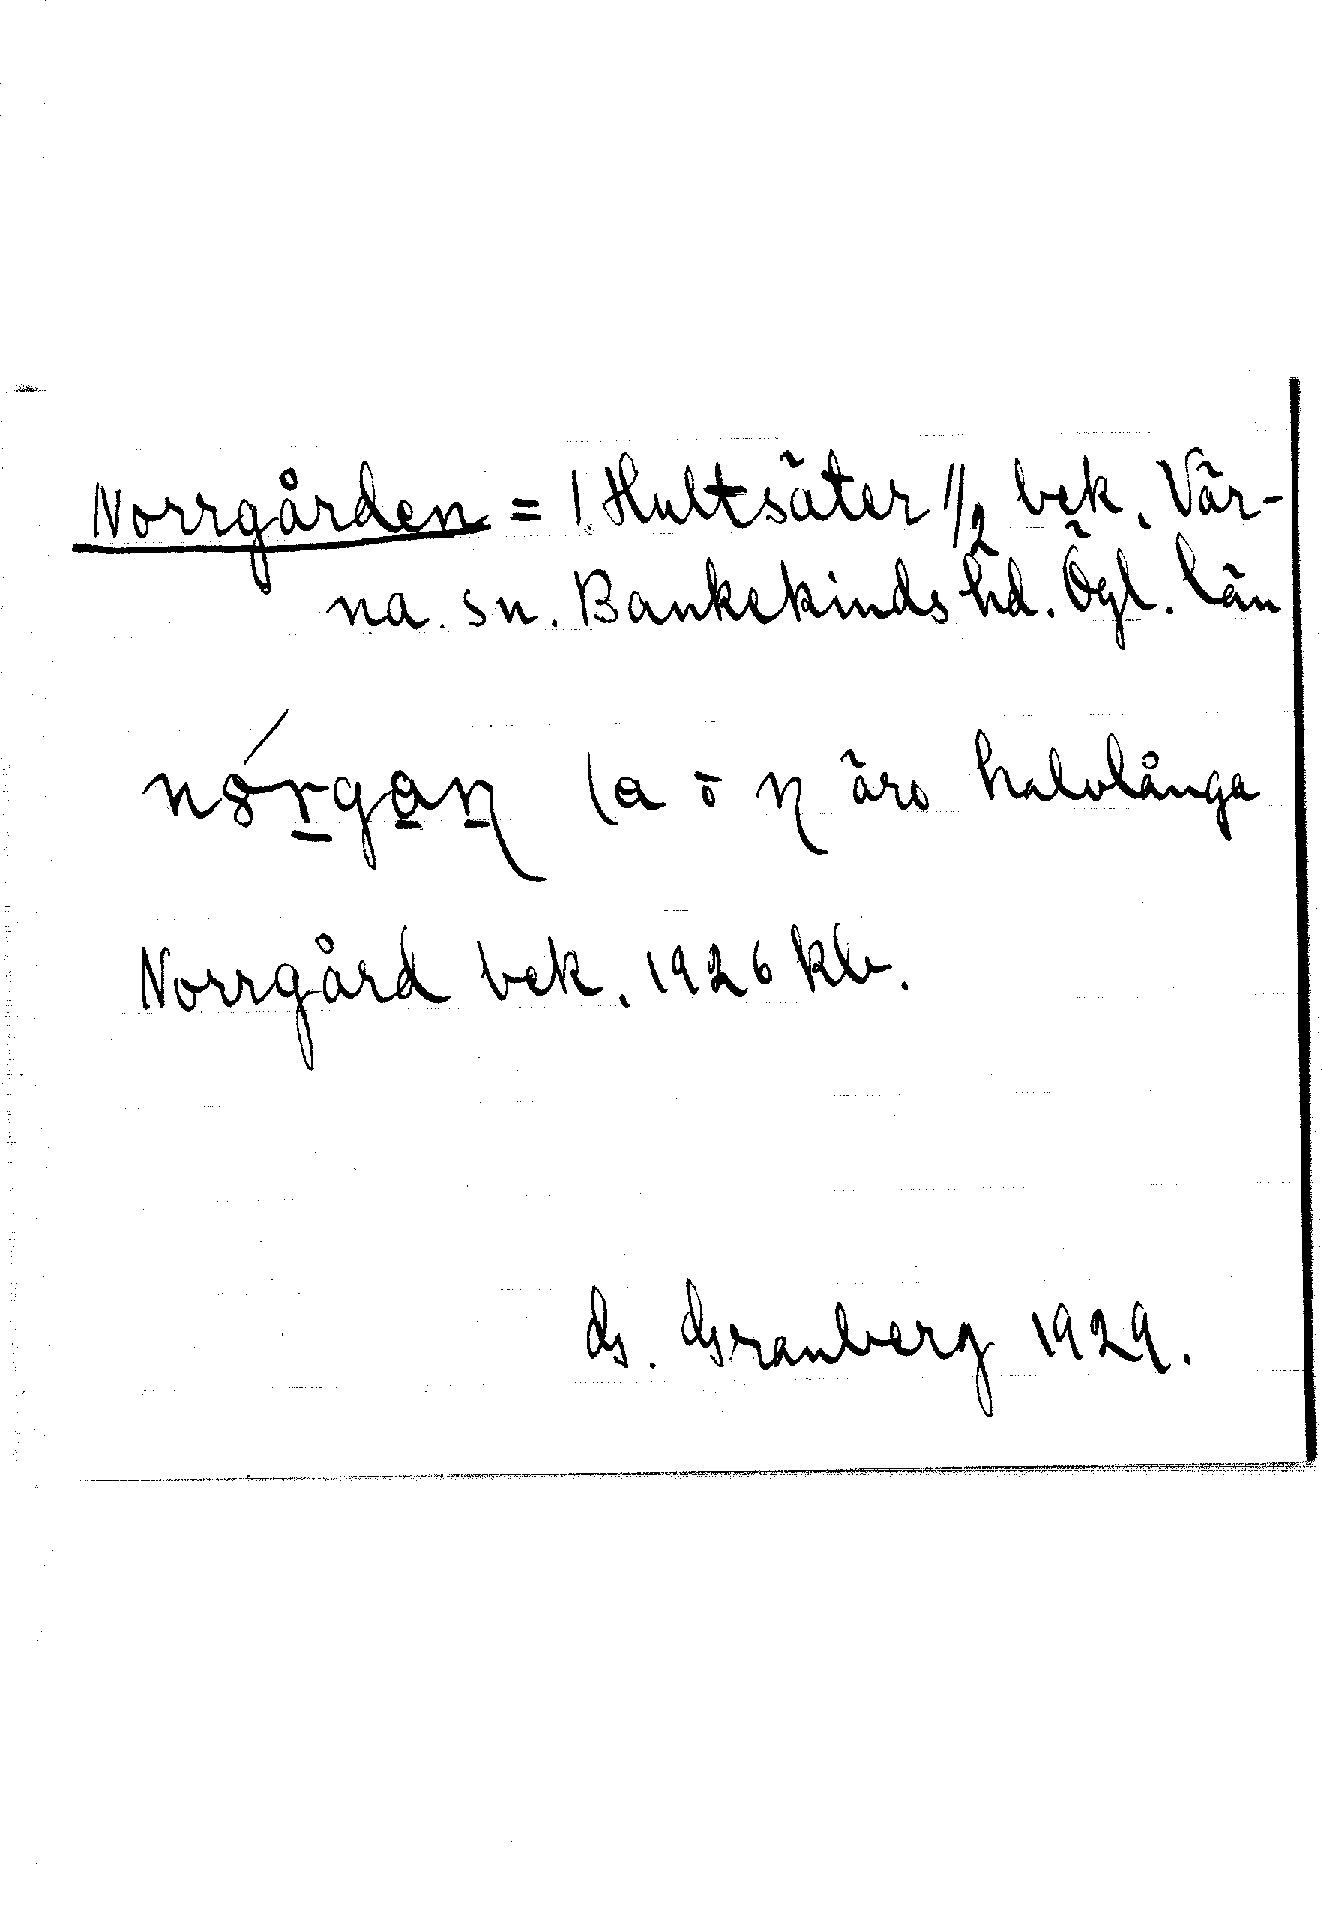 Norrgården = 1 Hultsäter 1/2 bek. Vär-
na sn. Bankekinds hd. Ögl. län
(a o n äro halvlånga
Norrgård bek. 1926 klr.
G. Granberg 1929.